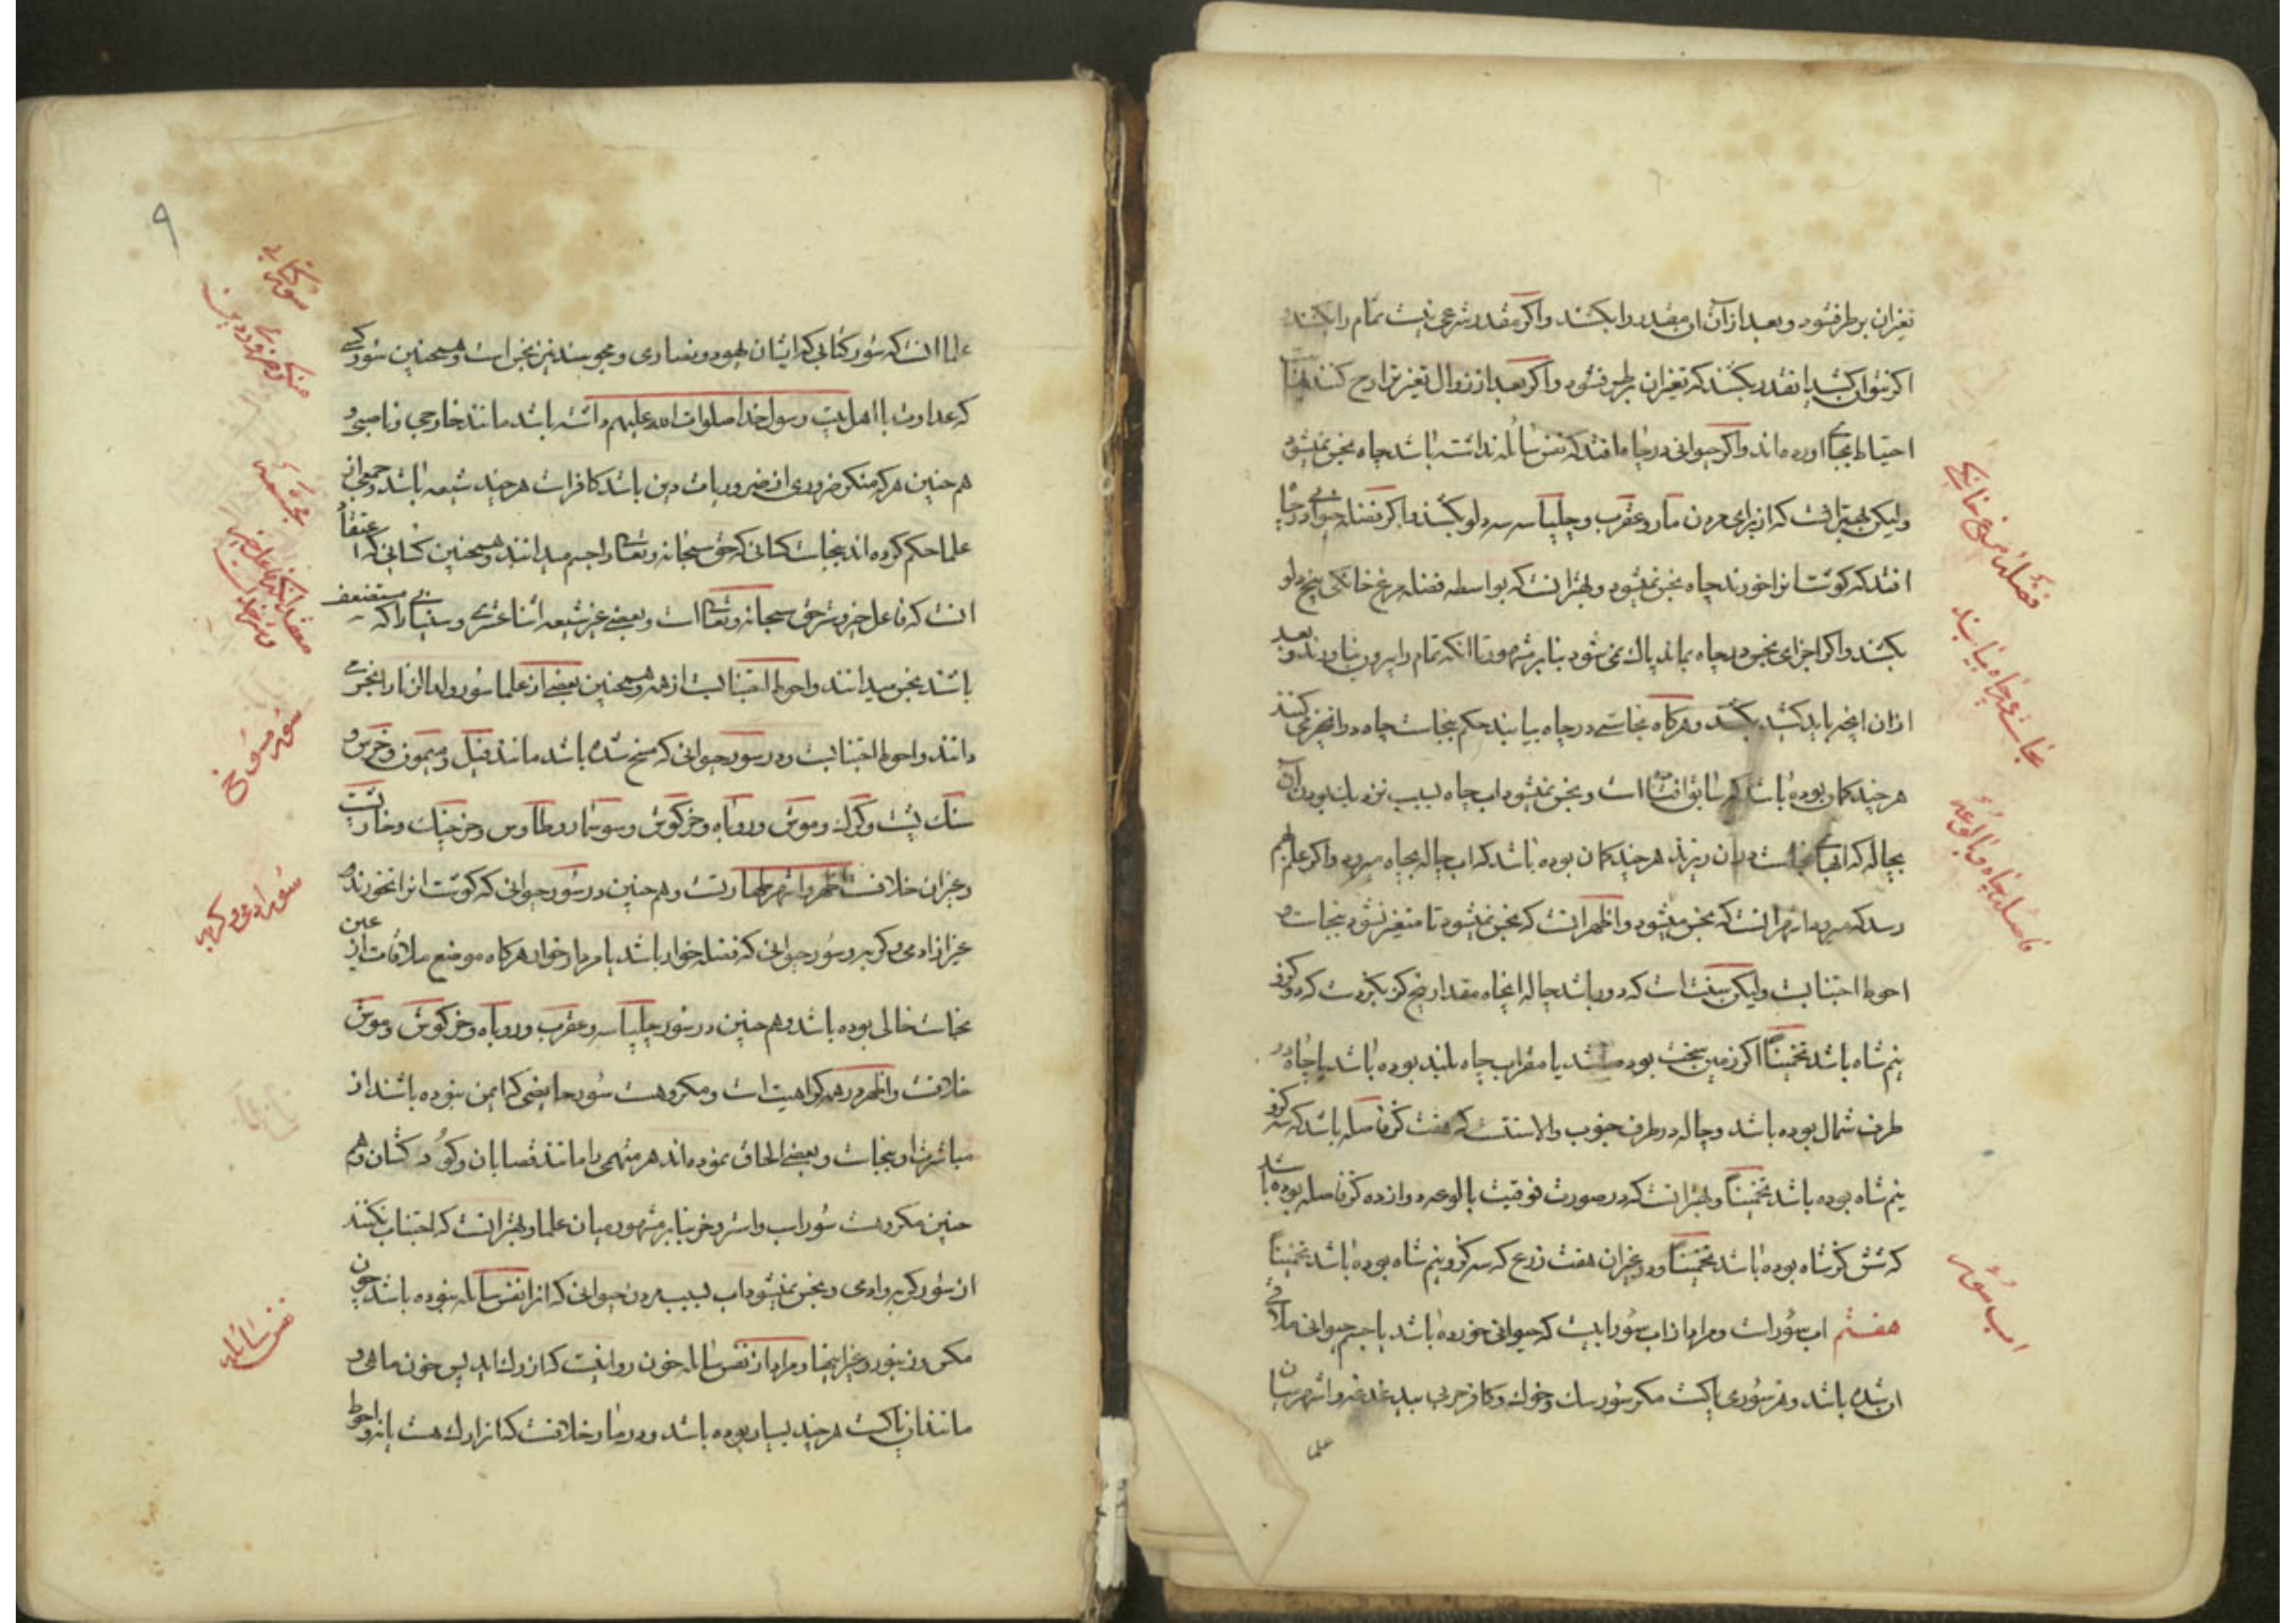 تغیر آن برطرف شود و بعد از آن آن مقدر را بکشند و اگر مقدر شرعی نیست تمام را بکشند
اگر نتوان کشید انقدر بکشند که تغیر آن برطرف شود و اگر بعد از زوال تغیر تراوح کنند
احتیاط بجا آورده اند و اگر حیوانی در چاه افتد که نفس سائله نداشته باشد چاه نجس نمیشود
ولیکن بهتر انست که از برای مردن مار و عقرب و چلپاسه سه دلو بکشند و اگر فضله حیوانی در چاه
افتد که گوشت انرا خورند چاه نجس نمیشود و بهتر انست که بواسطه فضله مرغ خانگی پنج دلو
بکشند و اگر اجزای نجس در چاه بماند پاک نمی شود بنابر مشهور تا انکه تمام را بیرون بیاورند و بعد
ازان انچه باید کشید بکشند و هرگاه نجاستی در چاه بیابند حکم بنجاست چاه در انچه می کنند
هرچند گمان بوده باشد که سابق افتاده است و نجس نمیشود اب چاه بسبب نزدیک بودن آن
بچاله که انها نجاست در ان ریزند هرچند گمان بوده باشد که اب چاله بچاه میرود و اگر علم بهم
رسد که میرود اشهر انست که نجس میشود و اظهر انست که نجس نمیشود تا متغیر نشود بنجاست و
احوط اجتنابست ولیکن سنت است که دور باشد چاله از چاه مقدار پنج گز بگز دست که دو گز و
نیم شاه باشد تخمیناً اگر زمین سخت بوده باشد یا مقر اب چاه بلند بوده باشد یا چاه در
طرف شمال بوده باشد و چاله در طرف جنوب والا سنتست که هفت گز فاصله باشد که سه گز و
نیم شاه بوده باشد تخمیناً و بهتر انست که در صورت فوقیت بالوعه دوازده گز فاصله بوده باشد
که شش گز شاه بوده باشد تخمیناً و در غیر ان هفت ذرع که سه گز و نیم شاه بوده باشد تخمیناً
هفتم اب سؤر است و مراد از اب سؤر ابیست که حیوانی خورده باشد یا جسم حیوانی ملاقی
ان شده باشد و هر سؤری پاکست مگر سؤر سگ و خوک و کافر حربی بیدغدغه و اشهر میان
علما
فضلهٔ مرغ خانگی
نجاستی در چاه بیابند
فاصله چاه و بالوعه
اب سؤر
۹
علما انست که سؤر کتابی که ایشان یهود و نصاری و مجوسند نیز نجس است و همچنین سؤر کسی
که عداوت با اهل بیت رسول خدا صلوات الله علیهم داشته باشد مانند خارجی و ناصبی و
هم چنین هر که منکر ضروری از ضروریات دین باشد کافر است هرچند شیعه باشد و جمعی از
علما حکم کرده اند بنجاست کسانی که حق سبحانه و تعالی را جسم میدانند و همچنین کسانی که اعتقاد
انست که فاعل خیر و شر حق سبحانه و تعالی است و بعضی غیر شیعه اثنا عشری و سنیانی را که مستضعف
باشند نجس میدانند و احوط اجتنابست از همه و همچنین بعضی از علما سؤر ولد الزنا را نجس
دانند و احوط اجتنابست و در سؤر حیوانی که مسخ شده باشد مانند فیل و میمون و خرس و
سنک پشت و گرگ و موش و روباه و خرگوش و سوسمار و طاوس و خرچنک و خارپشت
و غیر ان خلافست اظهر و اشهر طهارتست و هم چنین در سؤر حیوانی که گوشت انرا نخورند
غیر از ادمی و گربه و سؤر حیوانی که فضله خوار باشد یا مردار خوار هرگاه موضع ملاقات از عین
نجاست خالی بوده باشد و هم چنین در سؤر چلپاسه و عقرب و روباه و خرگوش و موش
خلافست و اظهر در همه کراهیت است و مکروهست سؤر حایضی که ایمن نبوده باشند از
مباشرت او بنجاست و بعضی الحاق نموده اند هر متهمی را مانند قصابان و کودکشان و هم
چنین مکروهست سؤر اسب و استر و خر بنابر مشهور میان علما و بهتر انست که اجتناب نکنند
از سؤر گربه و ادمی و نجس نمیشود اب بسبب مردن حیوانی که انرا نفس سائله نبوده باشد چون
مکس و زنبور و غیر اینها و مراد از نفس سائله خون روانیست که از رک اید پس خون ماهی و
مانند ان پاکست هرچند بسیار بوده باشد و در مار خلافست که انرا رک هست یا نه و احوط
سؤر کتابی
منکر ضروری دین
مجسمه
سؤر مسوخ
سؤر ادمی و گربه
نفس سائله